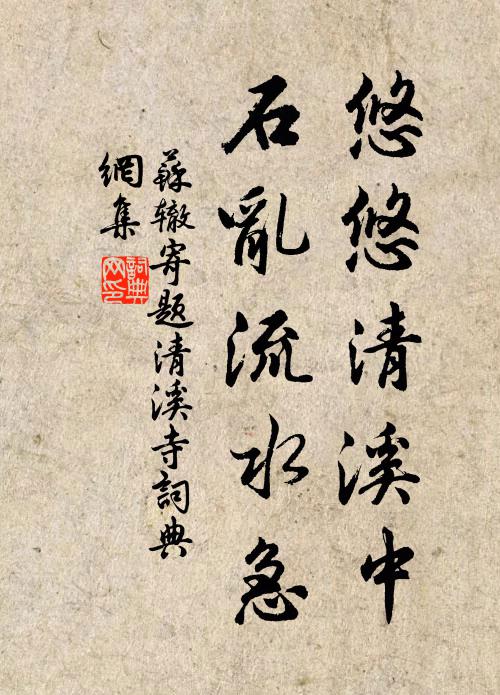 悠悠清溪中
石亂流水急
蘇辙寄题清溪寺詞典
網集
詞典網印